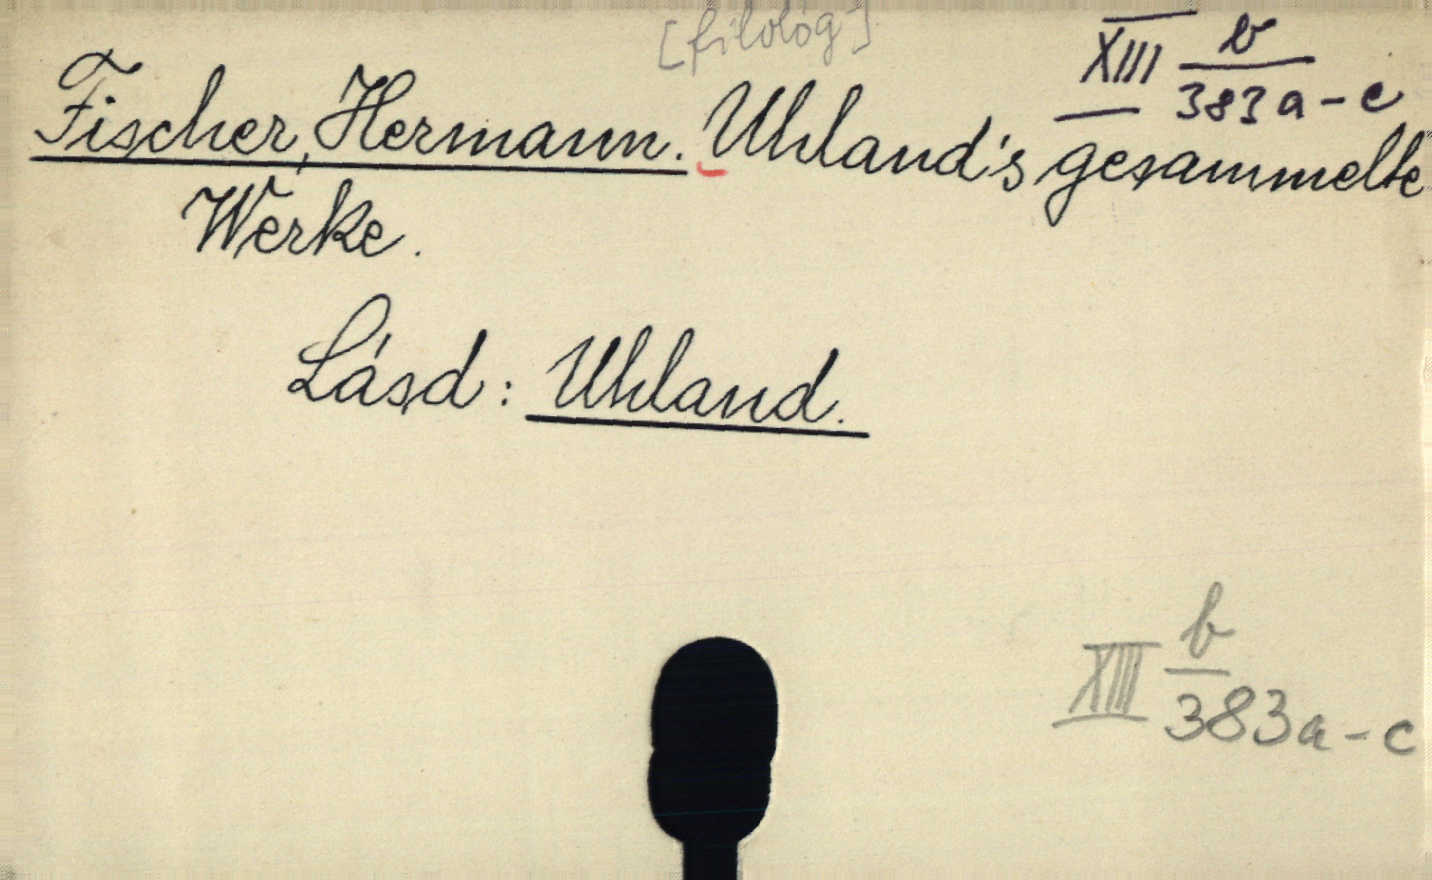 [filológ]
XIII b/383a-c
Fischer, Hermann. Uhland's gesammelte
Werke.
Lásd: Uhland.
XIII b/383a-c